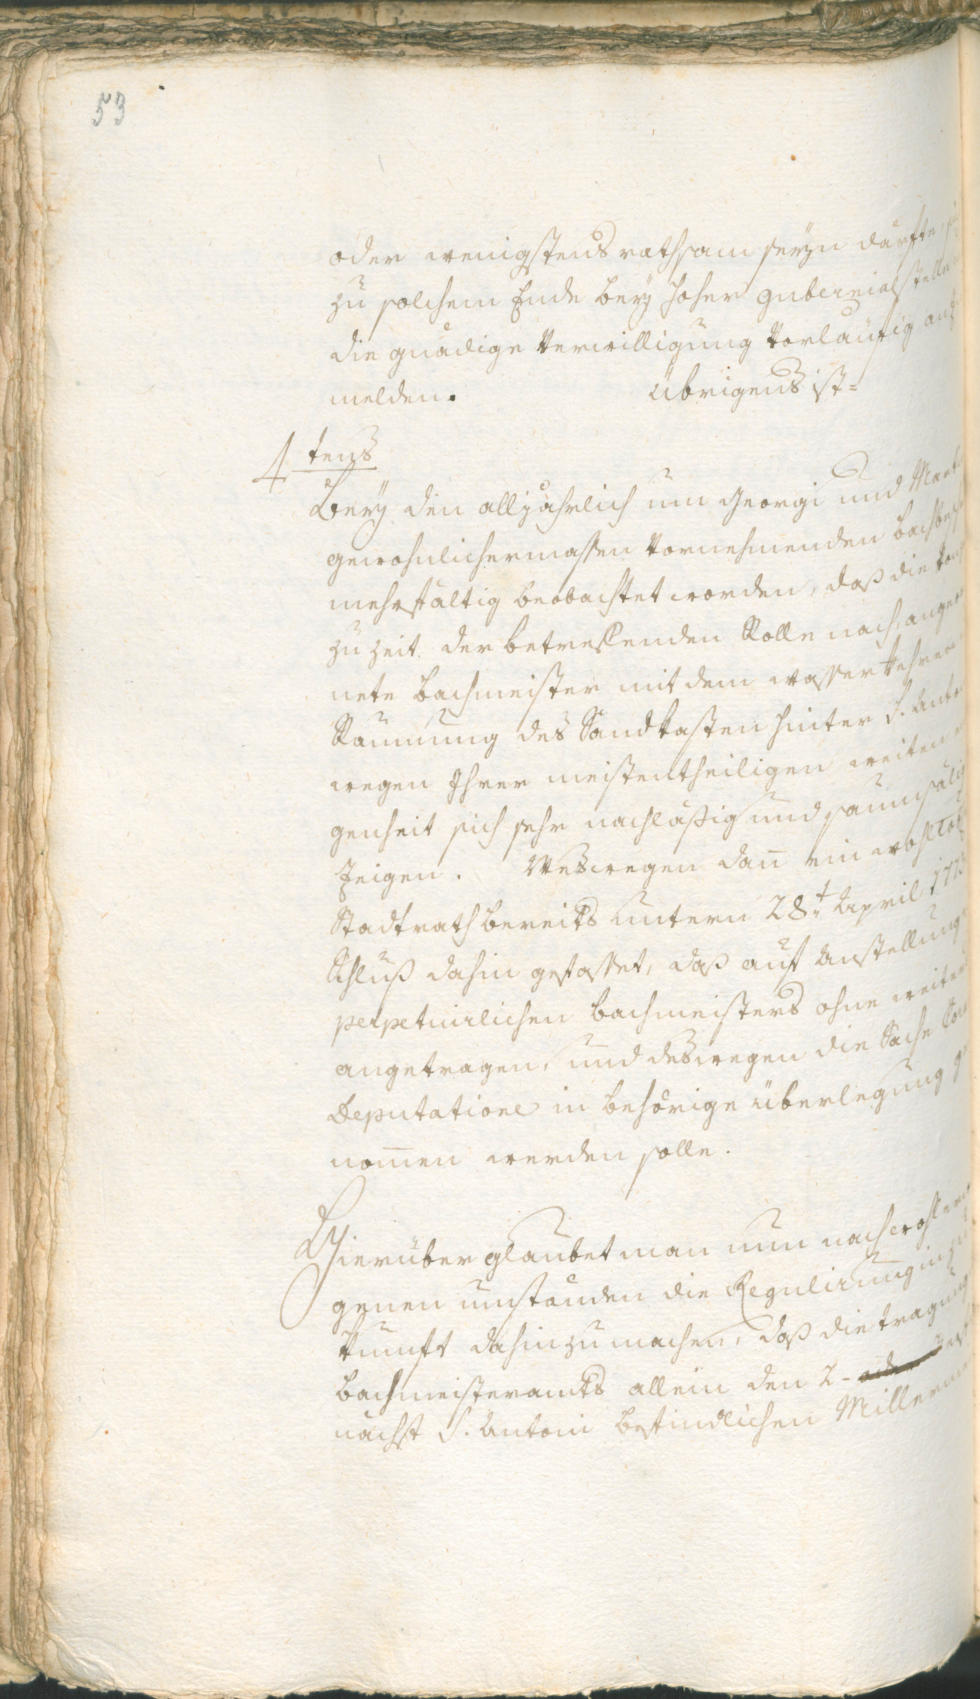 53
oder wenigstens rathsam seyn dürfte,
zu solchem Ende bey hoher Gubernialstelle
die gnädige Verwilligung vorläufig an
melden. Übrigens ist=
4 tens
Bey den alljährlich um Georgi und Mart
gewohnlichermassen vornehmenden bachbe
mehrfältig beobachtet worden, daß die von
zu zeit der betreffenden Rolle nach, ange
nete bachmeister mit dem wasser kehren
Raumung des Sandkasten hinter S. Anto
wegen Ihrer meistentheiligen weiten
genheit sich sehr nachläßig und saumsälig
zeigen. Weswegen dañ ein wohllöb
Stadtrath bereits untern 28t. April 177
Schluß dahin gefasset, daß auf Anstellung
perpetuirlichen bachmeisters ohne weiter
angetragen, und deswegen die Sache
Deputatione in behörige überlegung ge
nom̄en werden solle.
Hierüber glaubet man nun nach
genen umständen die Regulirung in
kunft dahin zu machen, daß die tragung
bachmeisteramts allein den 2-
nächst S. Antoni befindlichen Müller